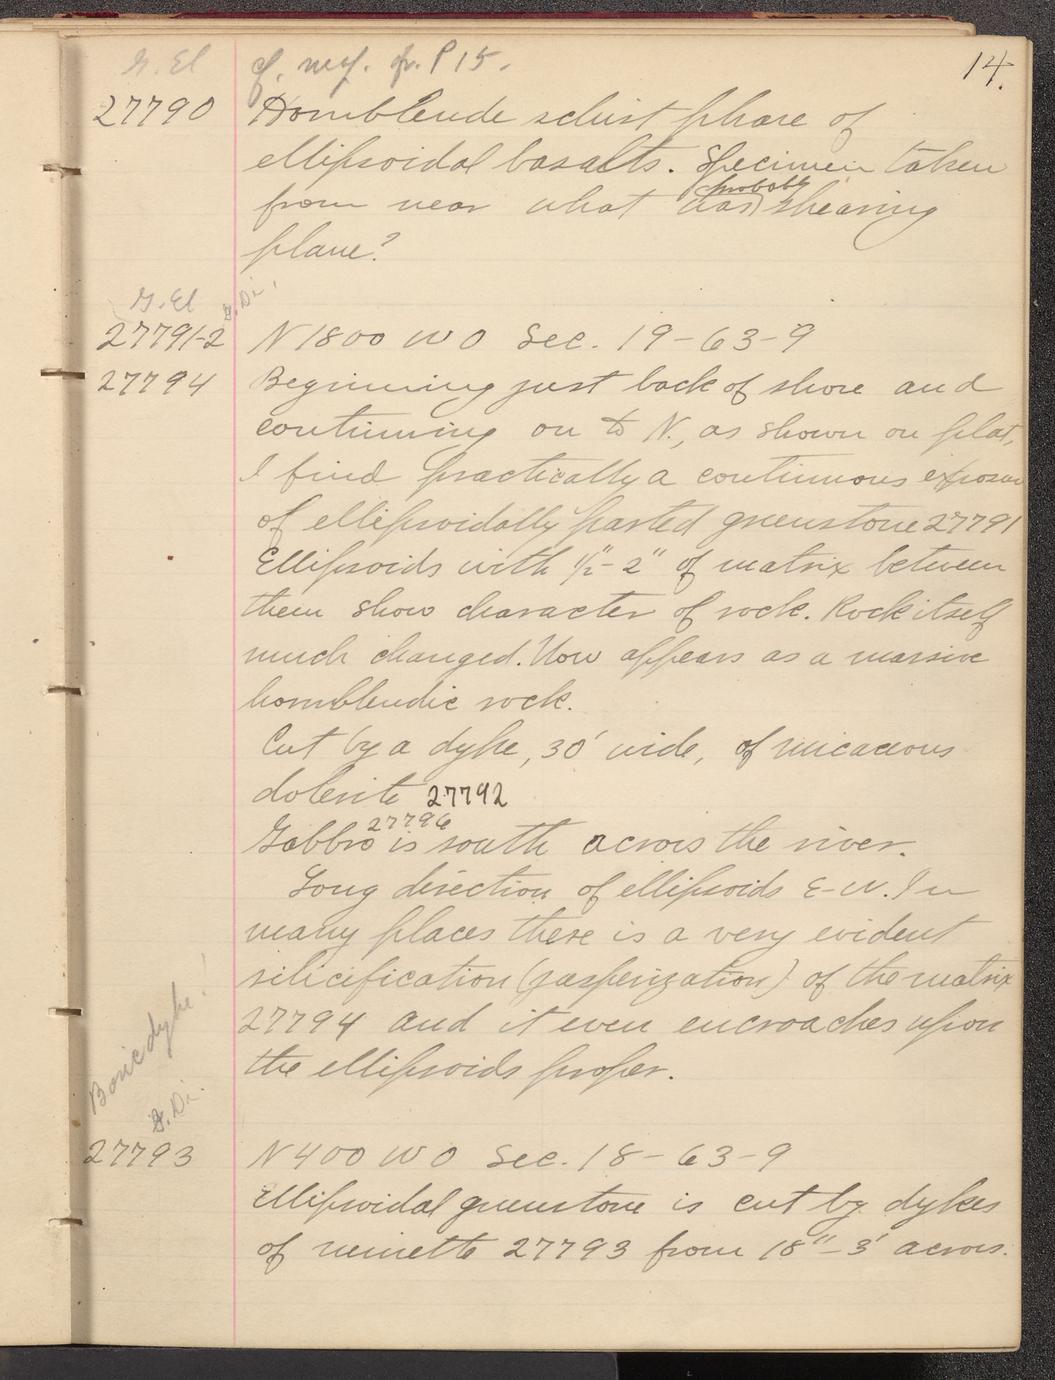 14.
G. El
cf. mcf. fr. P 15.
27790 Hornblende schist phase of
ellipsoidal basalts. Specimen taken
from near what was probably shearing
plane?
G. El G. Di.
27791-2 N 1800 W 0 Sec. 19-63-9
27794 Beginning just back of shore and
continuing on to N., as shown on plat,
I find practically a continuous exposure
of ellipsoidally parted greenstone 27791
Ellipsoids with ½"-2" of matrix between
them show character of rock. Rock itself
much changed. Now appears as a massive
hornblendic rock.
Cut by a dyke, 30' wide, of micaceous
dolerite 27792
27796
Gabbro is south across the river.
Long direction of ellipsoids E-W. In
many places there is a very evident
silicification (jasperization) of the matrix
27794 and it even encroaches upon
the ellipsoids proper.
Basic dyke!
G. Di.
27793 N 400 W 0 Sec. 18-63-9
Ellipsoidal greenstone is cut by dykes
of minette 27793 from 18"-3' across.